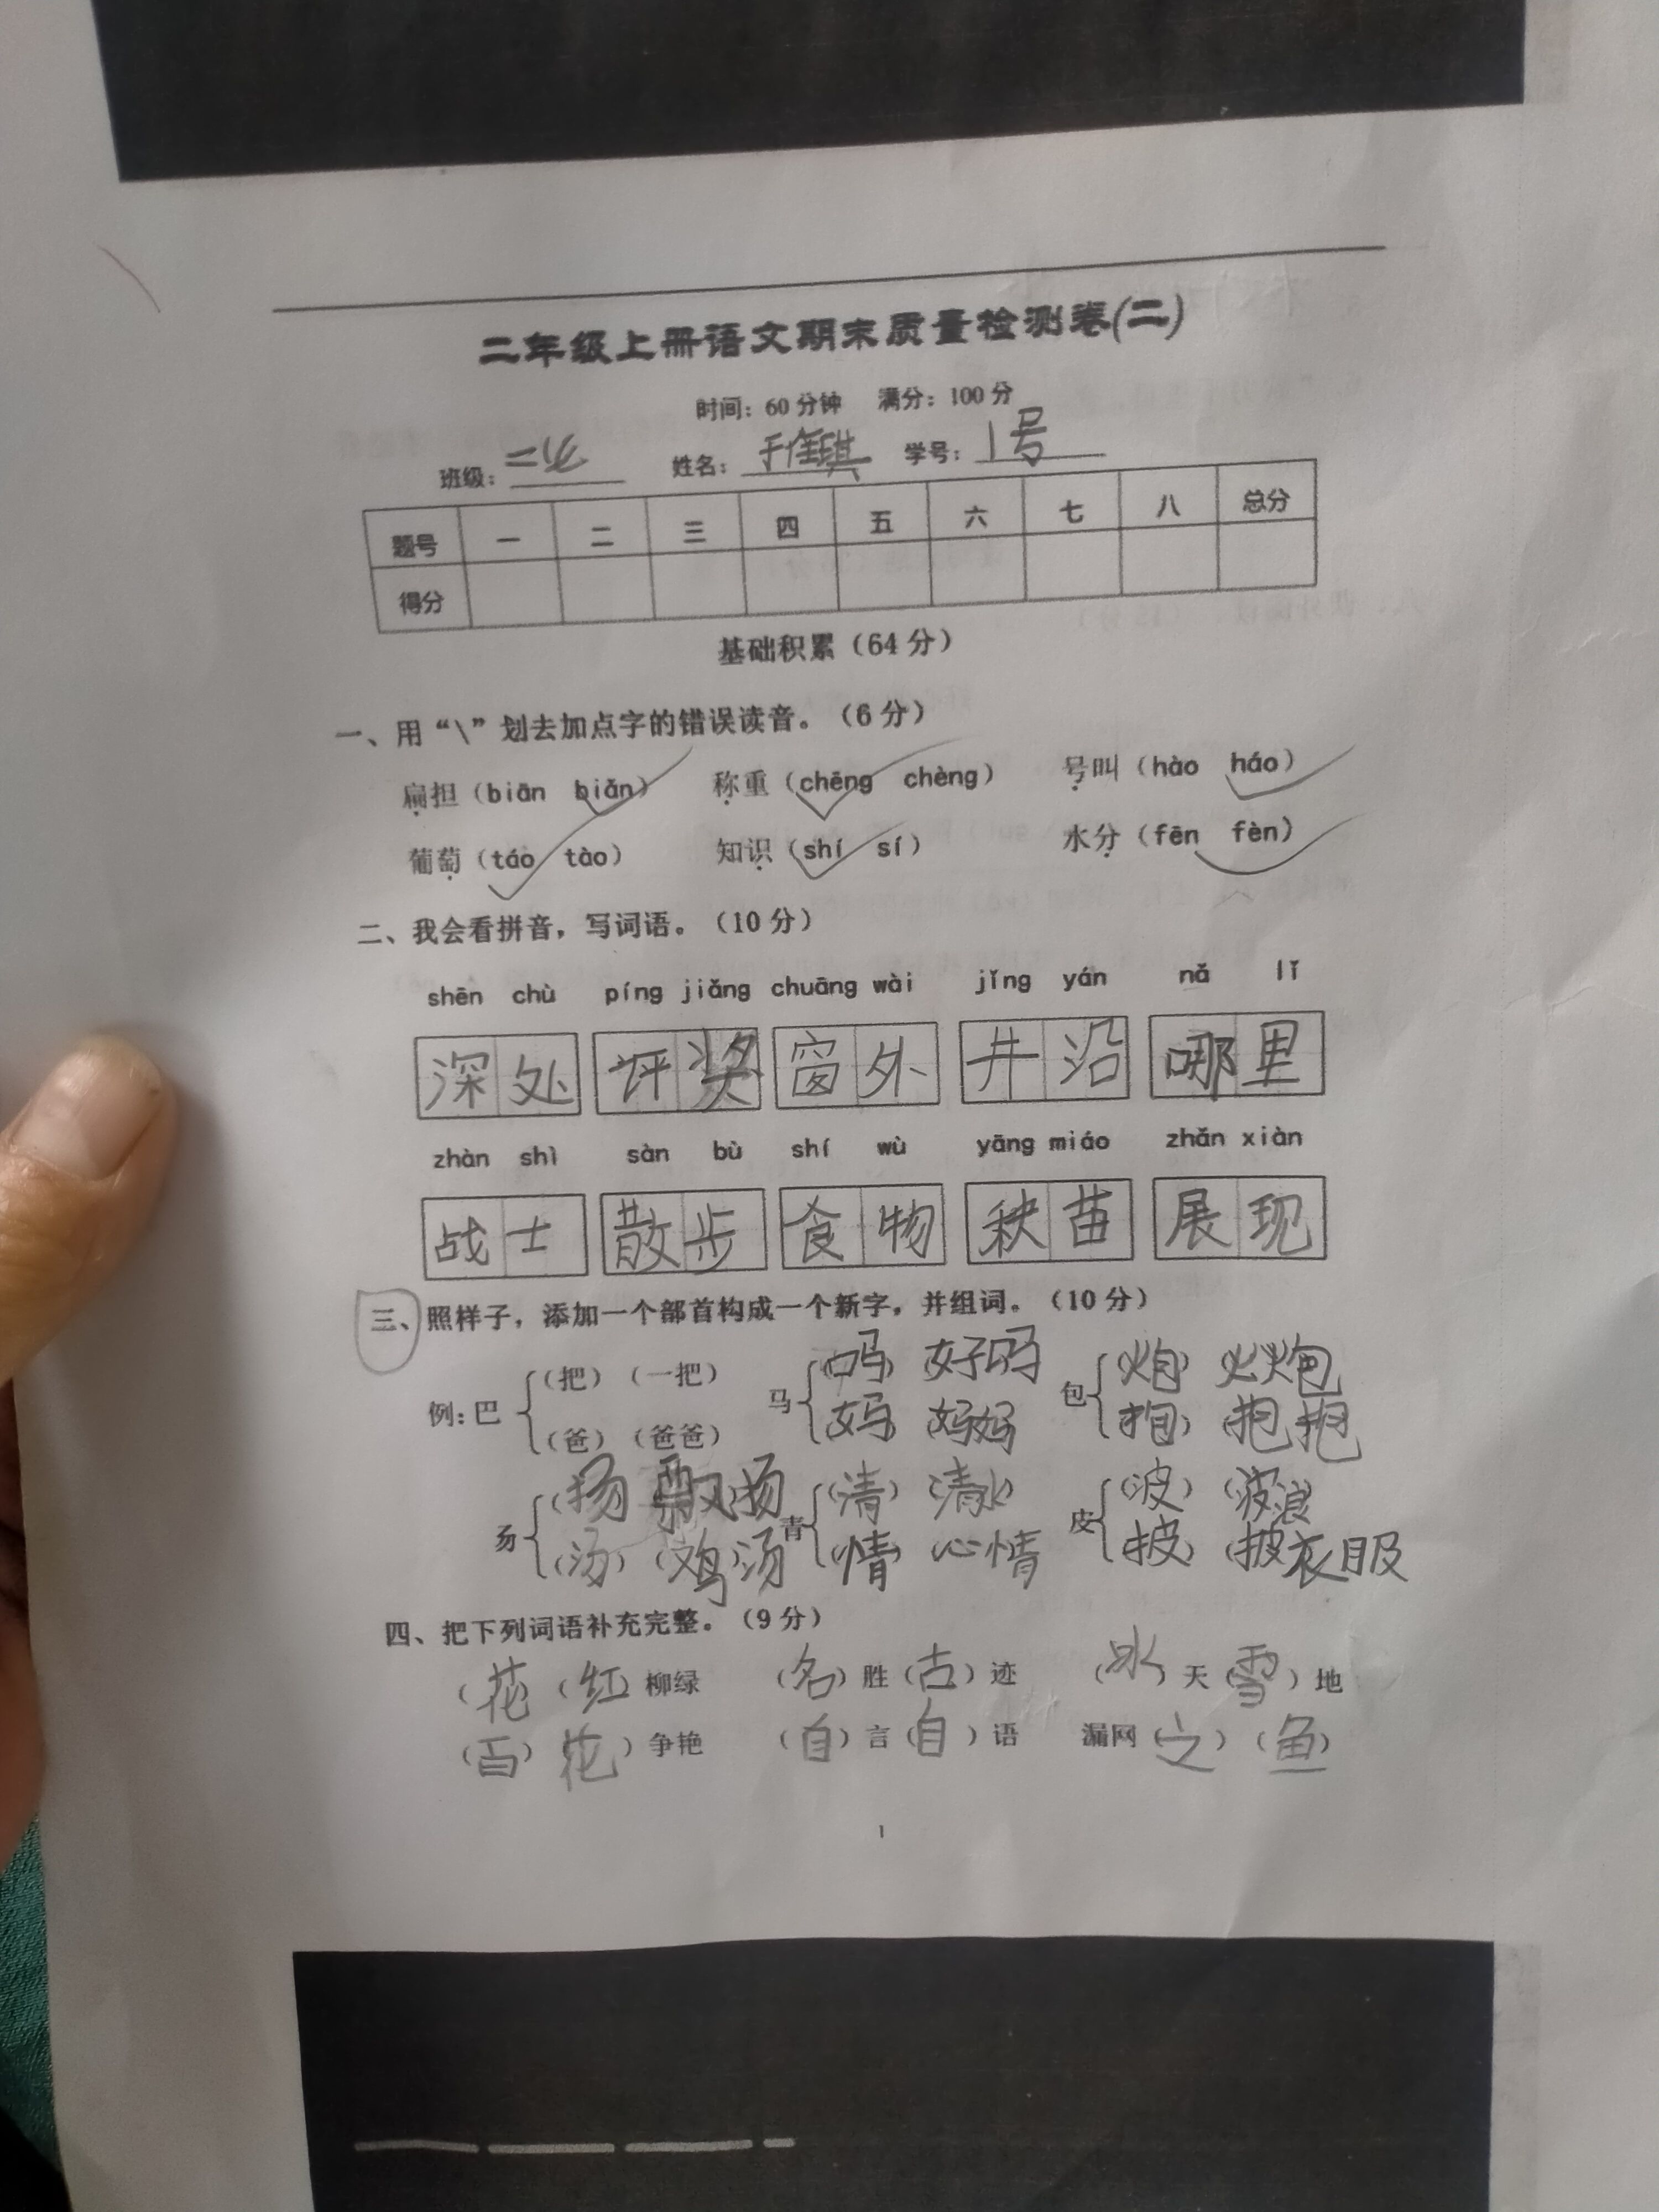 二年级上册语文期末质量检测卷(二)
时间：60分钟 满分：100分
班级： 姓名： 学号：1号
题号 一 二 三 四 五 六 七 八 总分
得分
基础积累（64分）
一、用“\”划去加点字的错误读音。（6分）
扁担（biān biǎn） 称重（chēng chèng） 号叫（hào háo）
葡萄（táo tào） 知识（shí sí） 水分（fēn fèn）
二、我会看拼音，写词语。（10分）
shēn chù píng jiǎng chuāng wài jǐng yán nǎ lǐ
深处 评奖 窗外 井沿 哪里
zhàn shì sàn bù shí wù yāng miáo zhǎn xiàn
战士 散步 食物 秧苗 展现
三、照样子，添加一个部首构成一个新字，并组词。（10分）
例：巴 （把）（一把） 马 吗 好吗 包 （炮） 火炮
（爸）（爸爸） 妈 妈妈 （抱） 抱抱
（扬 飘扬 青 （清）（清水） 皮 （波）（波浪
（汤）（鸡）汤 （情） 心情 披） （披衣服
四、把下列词语补充完整。（9分）
（花（红）柳绿 （名）胜（古）迹 （冰）天（雪）地
（百）花）争艳 （自）言（自）语 漏网（之）（鱼）
1